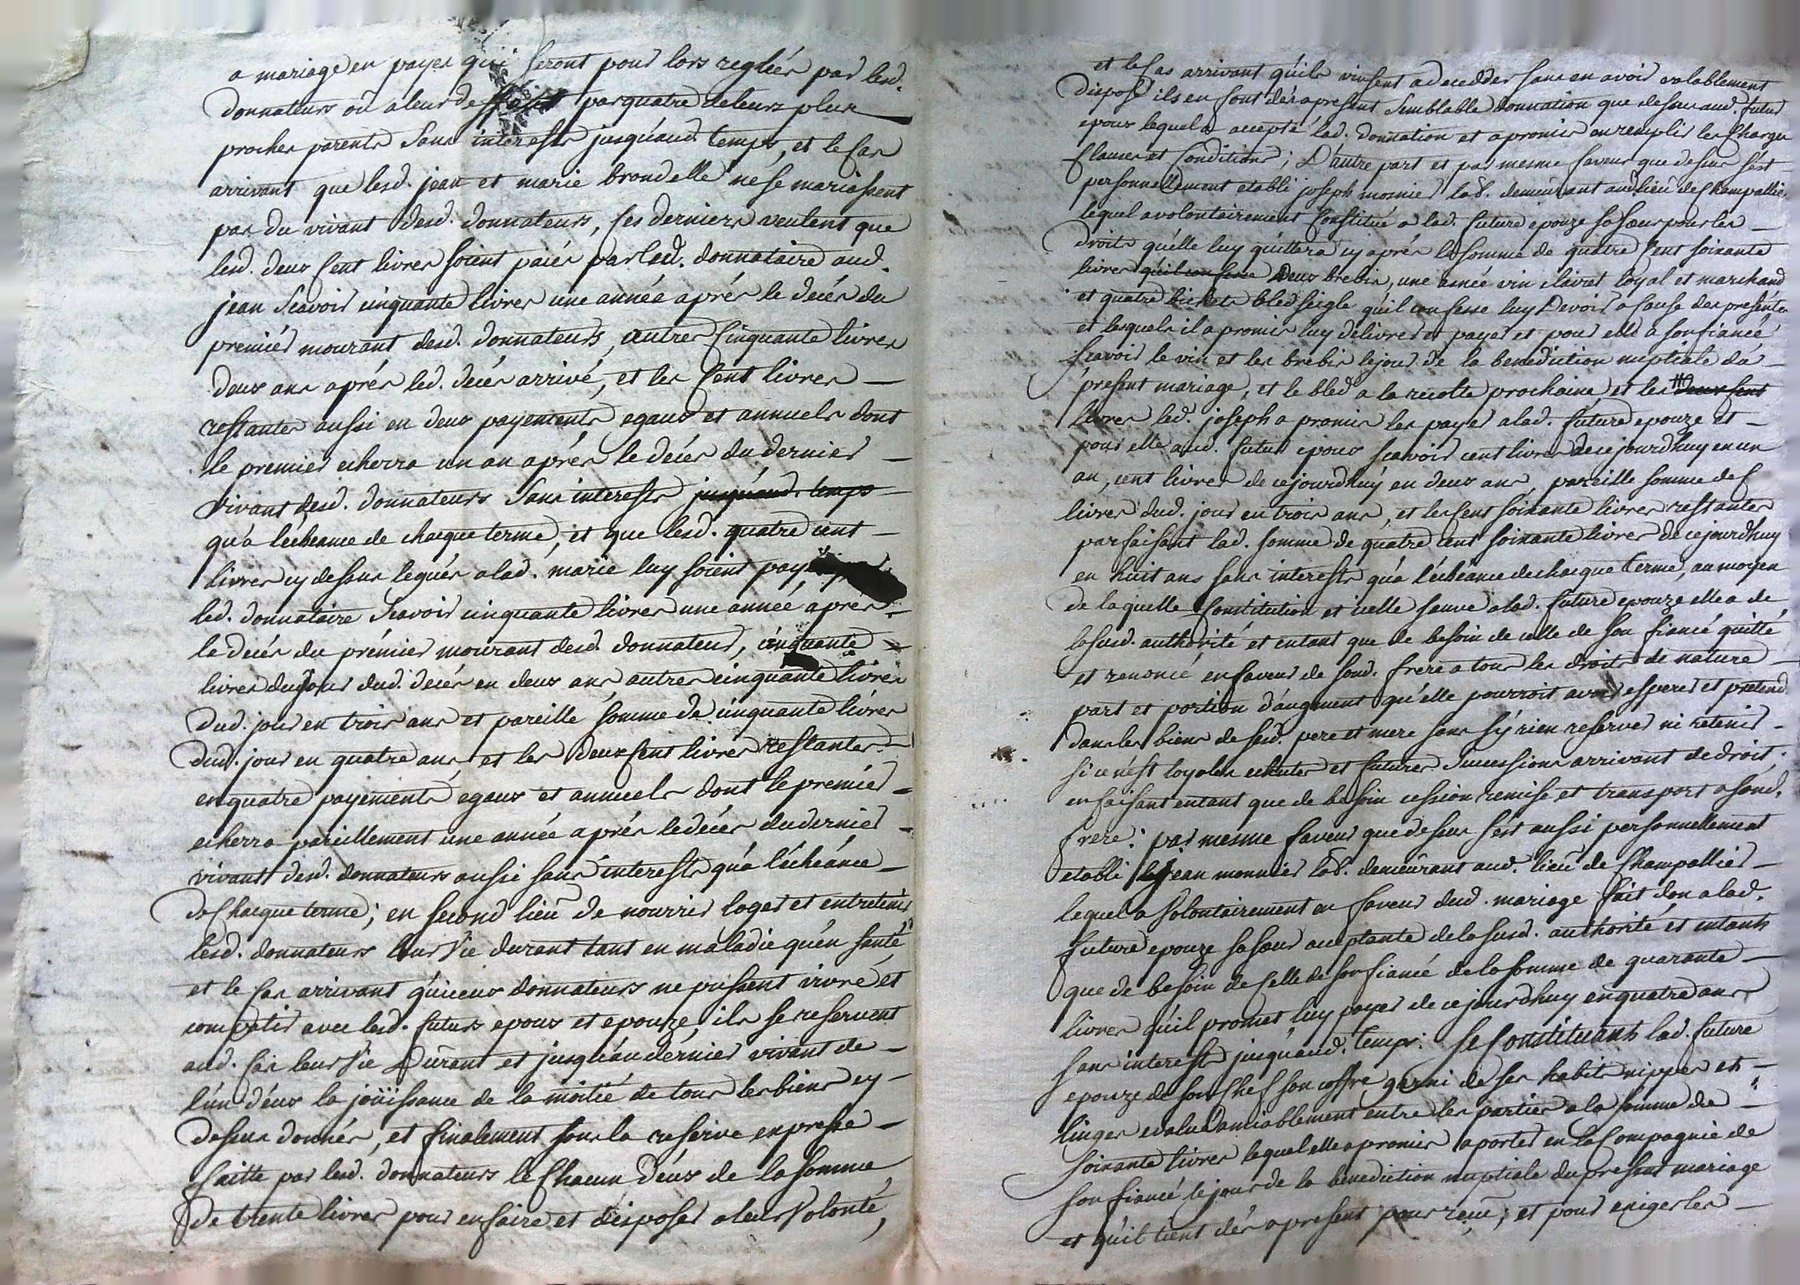 a mariage en payes qui seront pour lors regléés par lesd.
donnateurs ou a leur deffaut par quatre de leurs plus
proches parents sans interests jusqu'aud. temps, et le cas
arrivant que lesd. jean et marie brondelle ne se mariassent
pas du vivant desd. donnateurs, ces derniers veulent que
lesd. deux cent livres soient paiés par led. donnataire aud.
jean scavoir cinquante livres une année aprés le decés du
premiér mourant desd. donnateurs, autres cinquante livres
deux ans aprés led. decés arrivé, et les cent livres
restantes aussi en deux payements egaux et annuels dont
le premier echerra un an aprés le decés du dernier
vivant desd. donnateurs sans interests jusqu'aud. temps
qu'a l'echeance de chaque terme, et que lesd. quatre cent
livres cy dessus legués a lad. marie luy soient payés
led. donnataire scavoir cinquante livres une année aprés
le decés du prémier mourant desd. donnateurs, cinquante
livres dud. jour dud. decés en deux ans autres cinquante livres
dud. jour en trois ans et pareille somme de cinquante livres
dud. jour en quatre ans et les deux cent livres restantes
en quatre payements egaux et annuels dont le premier
echerra pareillement une année aprés le decés du dernier
vivant desd. donnateurs aussi sans interests qu'a l'echeance
de chaque terme; en second lieu de nourrir loger et entretenir
lesd. donnateurs leur vie durant tant en maladie qu'en santé
et le cas arrivant qu'iceux donnateurs ne pussent vivre et
compatir avec lesd. futurs epoux et epouze, ils se reservent
aud. cas leur vie durant et jusqu'au dernier vivant de
l'un d'eux la joüissance de la moitié de tous les biens cy
dessus donnés, et finalement sous la reserve expresse
faitte par lesd. donnateurs le chacun d'eux de la somme
de trente livres pour en faire et disposer a leur volonté,
et le cas arrivant qu'ils vinsent a deceder sans en avoir valablement
disposé ils en font dés a present semblable donnation que dessus aud. futur
epoux lequel a accepté lad. donnation et a promis en remplir les charges
clauses et conditions; d'autre part et par mesme faveur que dessus s'est
personnellement etabli joseph monnier lab. demeurant aud. lieu de champallier
lequel a volontairement constitué a lad. future epouze sa soeur pour les
droits qu'elle luy quittera cy aprés la somme de quatre cent soixante
livres qu'il confesse deux brebis, une anée vin clairet loyal et marchand
et quatre bichets bled seigle qu'il confesse luy devoir a cause des presentes
et lesquels il a promis luy delivrer et payer et pour elle a son fiancé
scavoir le vin et les brebis le jour de la benediction nuptiale du
present mariage, et le bled a la recolte prochaine, et les deux cent
livres led. joseph a promis les payer a lad. future epouze et
pour elle aud. futur epoux scavoir cent livres de ce jourdhuy en un
an, cent livres de ce jourdhuy en deux ans pareille somme de C
livres dud. jour en trois ans, et les cent soixante livres restantes
parfaisant lad. somme de quatre cent soixante livres de ce jourdhuy
en huit ans sans interests qu'a l'echeance de chaque terme, au moyen
de laquelle constitution et icelle sauve a lad. future epouze elle a de
la susd. authorité et entant que de besoin de celle de son fiancé quitté
et renoncé en faveur de sond. frere a tous les droits de nature
part et portion d'augment qu'elle pourroit avoir esperer et pretendre
dans les biens de sesd. pere et mere sans s'y rien reserver ni retenir
si ce n'est loyales echutes et futures successions arrivant de droit;
en faisant entant que de besoin cession remise et transport a sond.
frere: par mesme faveur que dessus s'est aussi personnellement
etabli jean monnier lab. demeurant aud. lieu de champallier
lequel a volontairement en faveur dud. mariage fait don a lad.
future epouze sa soeur acceptante de la susd. authorité et entant
que de besoin de celle de son fiancé de la somme de quarante
livres qu'il promet luy payer de ce jourdhuy en quatre ans
sans interests jusqu'aud. temps: se constituant lad. future
epouze de son chef son coffre garni de ses habits nippes et
linges evalué amiablement entre les parties a la somme de
soixante livres lequel elle a promis aporter en la compagnie de
son fiancé le jour de la benediction nuptiale du present mariage
et qu'il tient dés a present pour reçeu; et pour exiger les